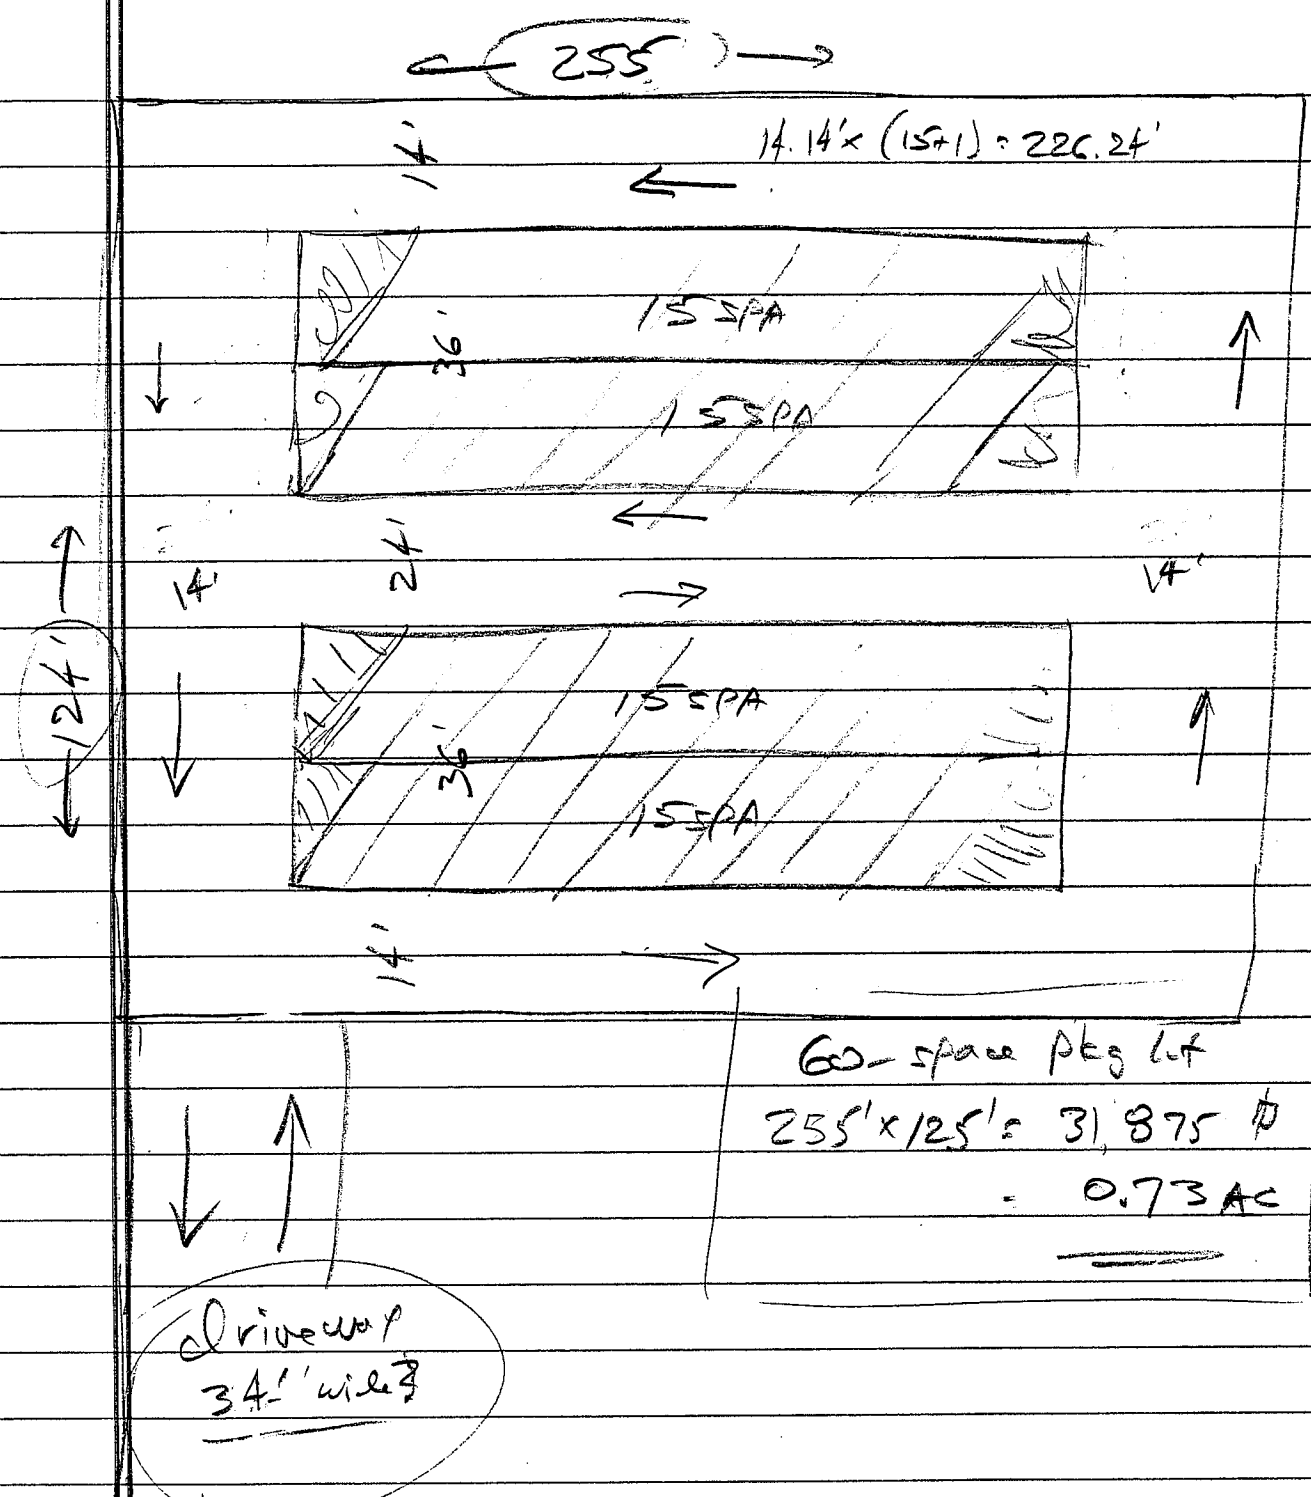 255
14.14'x (15+1) = 226.24'
14'
15 SPA
36'
15 SPA
24'
14'
14'
124'
15 SPA
36'
15 SPA
14'
60-space pkg lot
255'x125'= 31,875
= 0.73 AC
driveway
34'